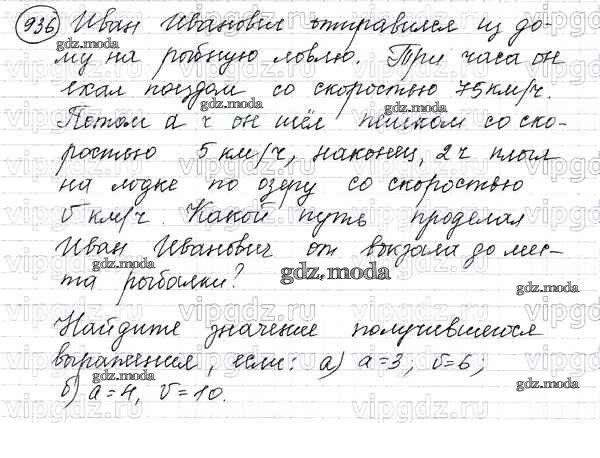 936 Иван Иванович отправился из до-
му на рыбную ловлю. Три часа он
ехал поездом со скоростью 75 км/ч.
Потом a ч он шёл пешком со ско-
ростью 5 км/ч, наконец, 2 ч плыл
на лодке по озеру со скоростью
v км/ч. Какой путь проделал
Иван Иванович от вокзала до мес-
та рыбалки?
gdz.moda
Найдите значение получившегося
выражения, если: а) a=3; v=6;
б) a=4, v=10.